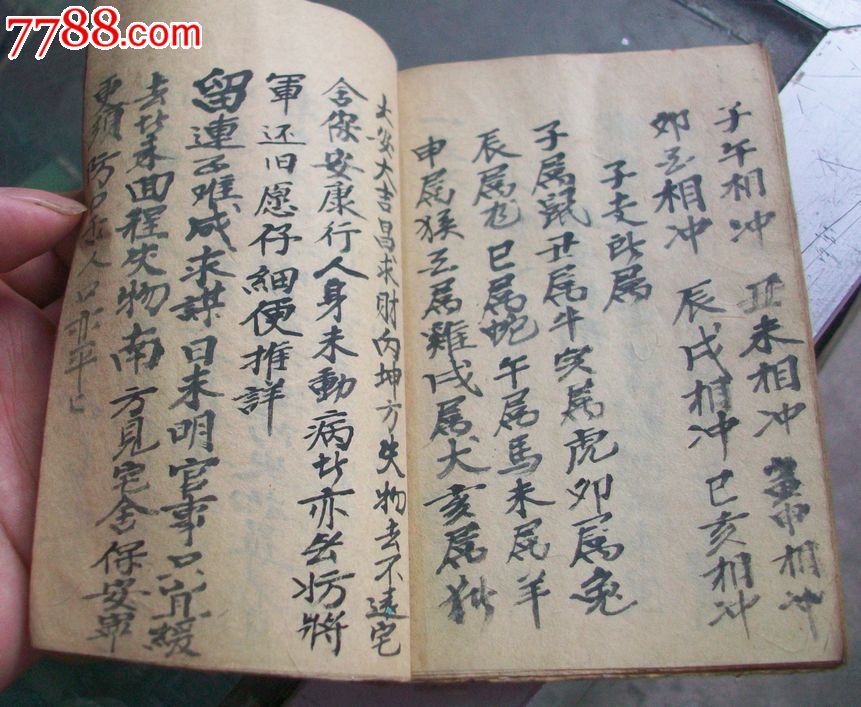 7788.com
子午相冲 丑未相冲 寅申相冲
卯酉相冲 辰戌相冲 巳亥相冲
子支所属
子属鼠 丑属牛 寅属虎 卯属兔
辰属龙 巳属蛇 午属馬 未属羊
申属猴 酉属雞 戌属犬 亥属猪
大安大吉昌求财向坤方失物去不遠宅
舍保安康行人身未動病者亦无妨將
軍还旧愿仔細便推詳
留連事难成求謀日未明官事只宜緩
去者未回程失物南方見宅舍保安寧
更須防口舌人口亦平